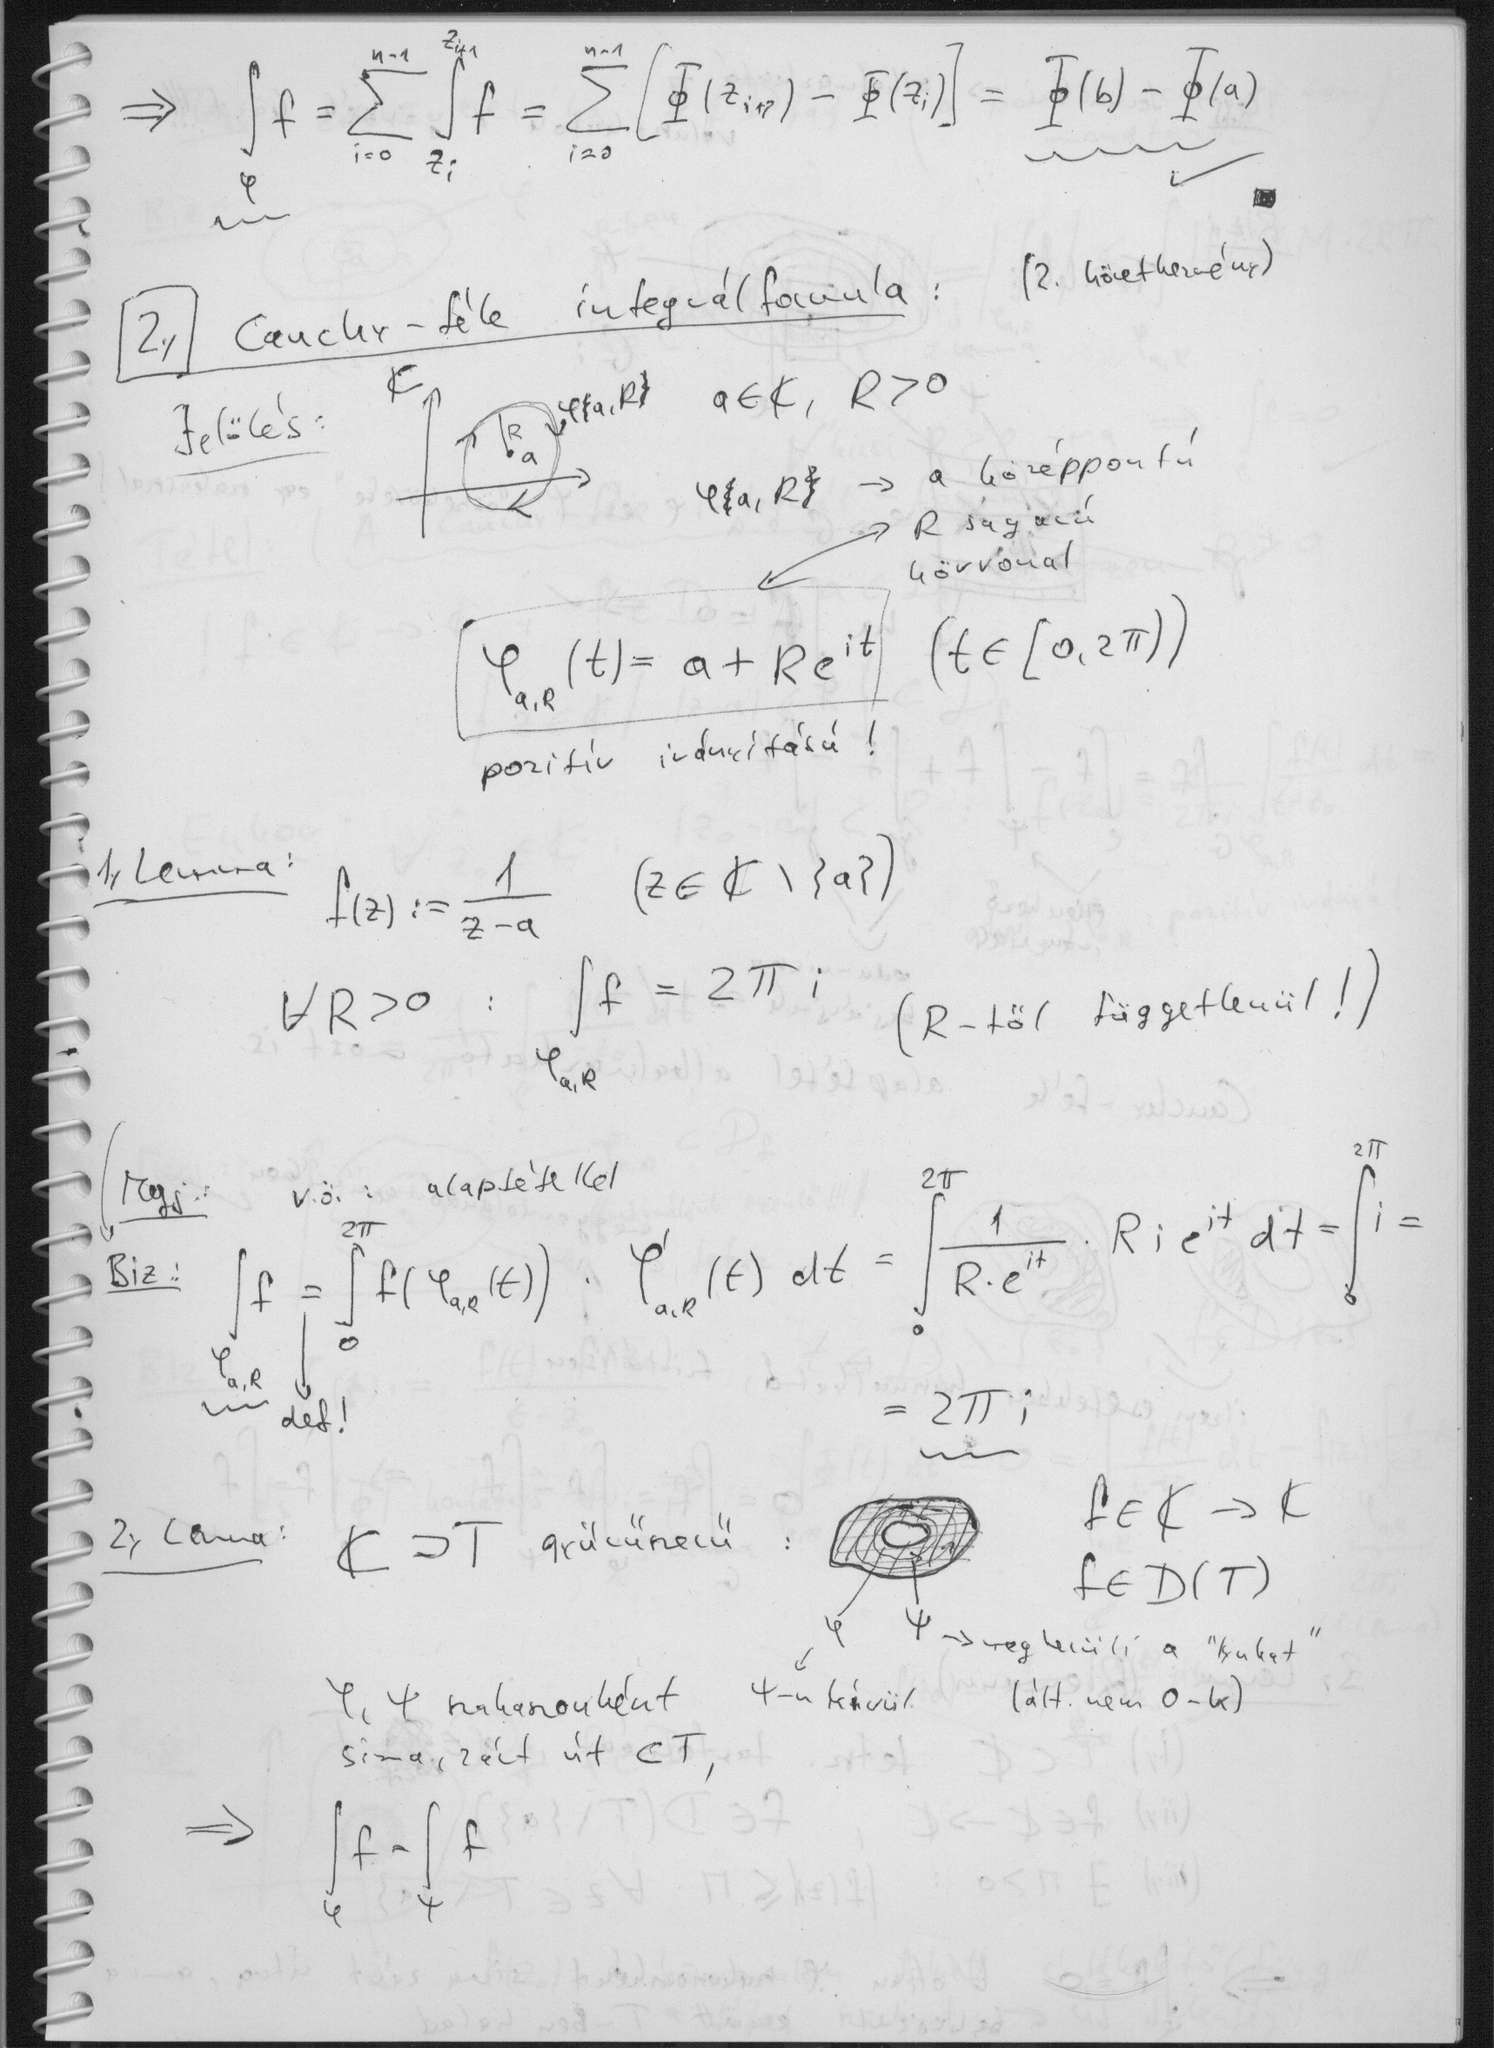 ⇒ ∫_φ f = Σ_{i=0}^{n-1} ∫_{z_i}^{z_{i+1}} f = Σ_{i=0}^{n-1} [Φ(z_{i+1}) - Φ(z_i)] = Φ(b) - Φ(a) ✓ ■
2., Cauchy-féle integrálformula : (2. következmény)
Jelölés: ℂ R a φ{a,R} a∈ℂ, R>0
φ{a,R} → a középpontú
R sugarú
körvonal
φ_{a,R}(t) = a + Re^{it} (t∈[0,2π))
pozitív irányítású!
1, Lemma: f(z) := 1/(z-a) (z∈ℂ\{a})
∀R>0 : ∫_{φ_{a,R}} f = 2πi (R-től függetlenül!)
Megj.: v.ö.: alaptétellel
Biz.: ∫_{φ_{a,R}} f = ∫_0^{2π} f(φ_{a,R}(t)) · φ'_{a,R}(t) dt = ∫_0^{2π} 1/(R·e^{it}) · Rie^{it} dt = ∫_0^{2π} i =
def!
= 2πi
2, Lemma: ℂ⊃T gyűrűszerű : f∈ℂ→ℂ
f∈D(T)
φ ψ → megkerüli a "lyukat"
φ, ψ szakaszonként ψ-n kívül (ált. nem 0-k)
sima, zárt út ⊂T,
⇒ ∫_φ f = ∫_ψ f